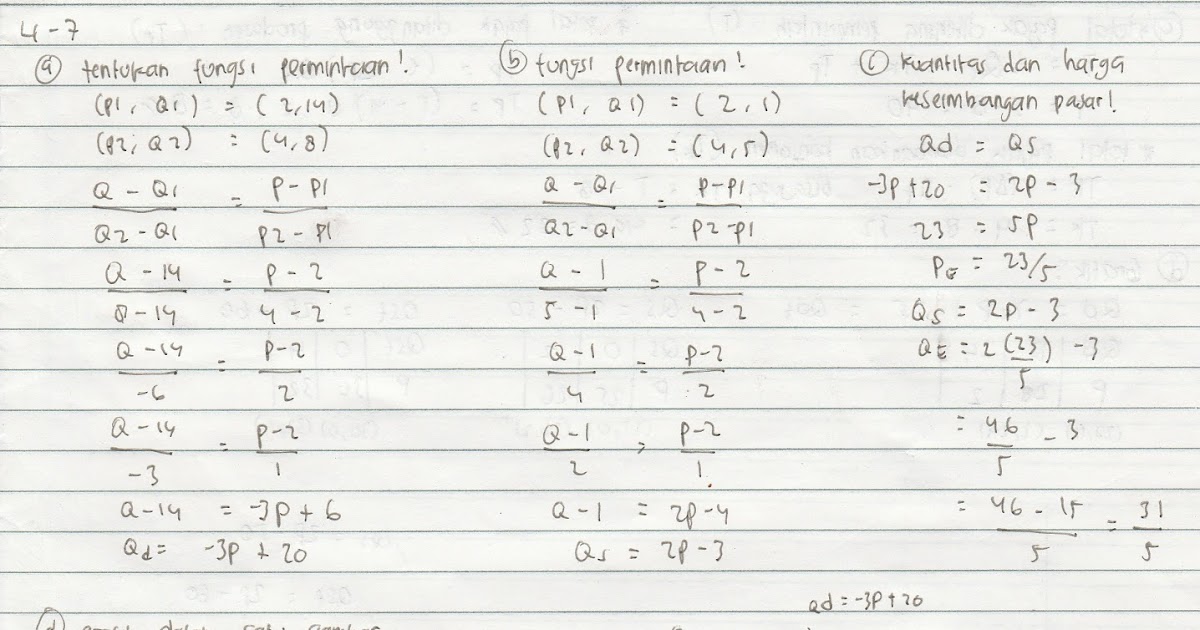 4-7
(a) tentukan fungsi permintaan!
(P1, Q1) = (2,14)
(P2, Q2) = (4,8)
Q - Q1 / Q2 - Q1 = P - P1 / P2 - P1
Q - 14 / 8 - 14 = P - 2 / 4 - 2
Q - 14 / -6 = P-2 / 2
Q - 14 / -3 = P-2 / 1
Q-14 = -3P + 6
Qd = -3P + 20
(b) fungsi permintaan!
(P1, Q1) = (2, 1)
(P2, Q2) = (4, 5)
Q - Q1 / Q2-Q1 = P-P1 / P2-P1
Q - 1 / 5 - 1 = P - 2 / 4 - 2
Q-1 / 4 = P-2 / 2
Q-1 / 2 = P-2 / 1
Q-1 = 2P-4
Qs = 2P-3
(c) kuantitas dan harga
keseimbangan pasar!
Qd = Qs
-3P+20 = 2P-3
23 = 5P
PE = 23/5
Qs = 2P - 3
QE = 2 (23/5) - 3
= 46/5 - 3
= 46 - 15 / 5 = 31/5
Qd = -3P+20
(d)